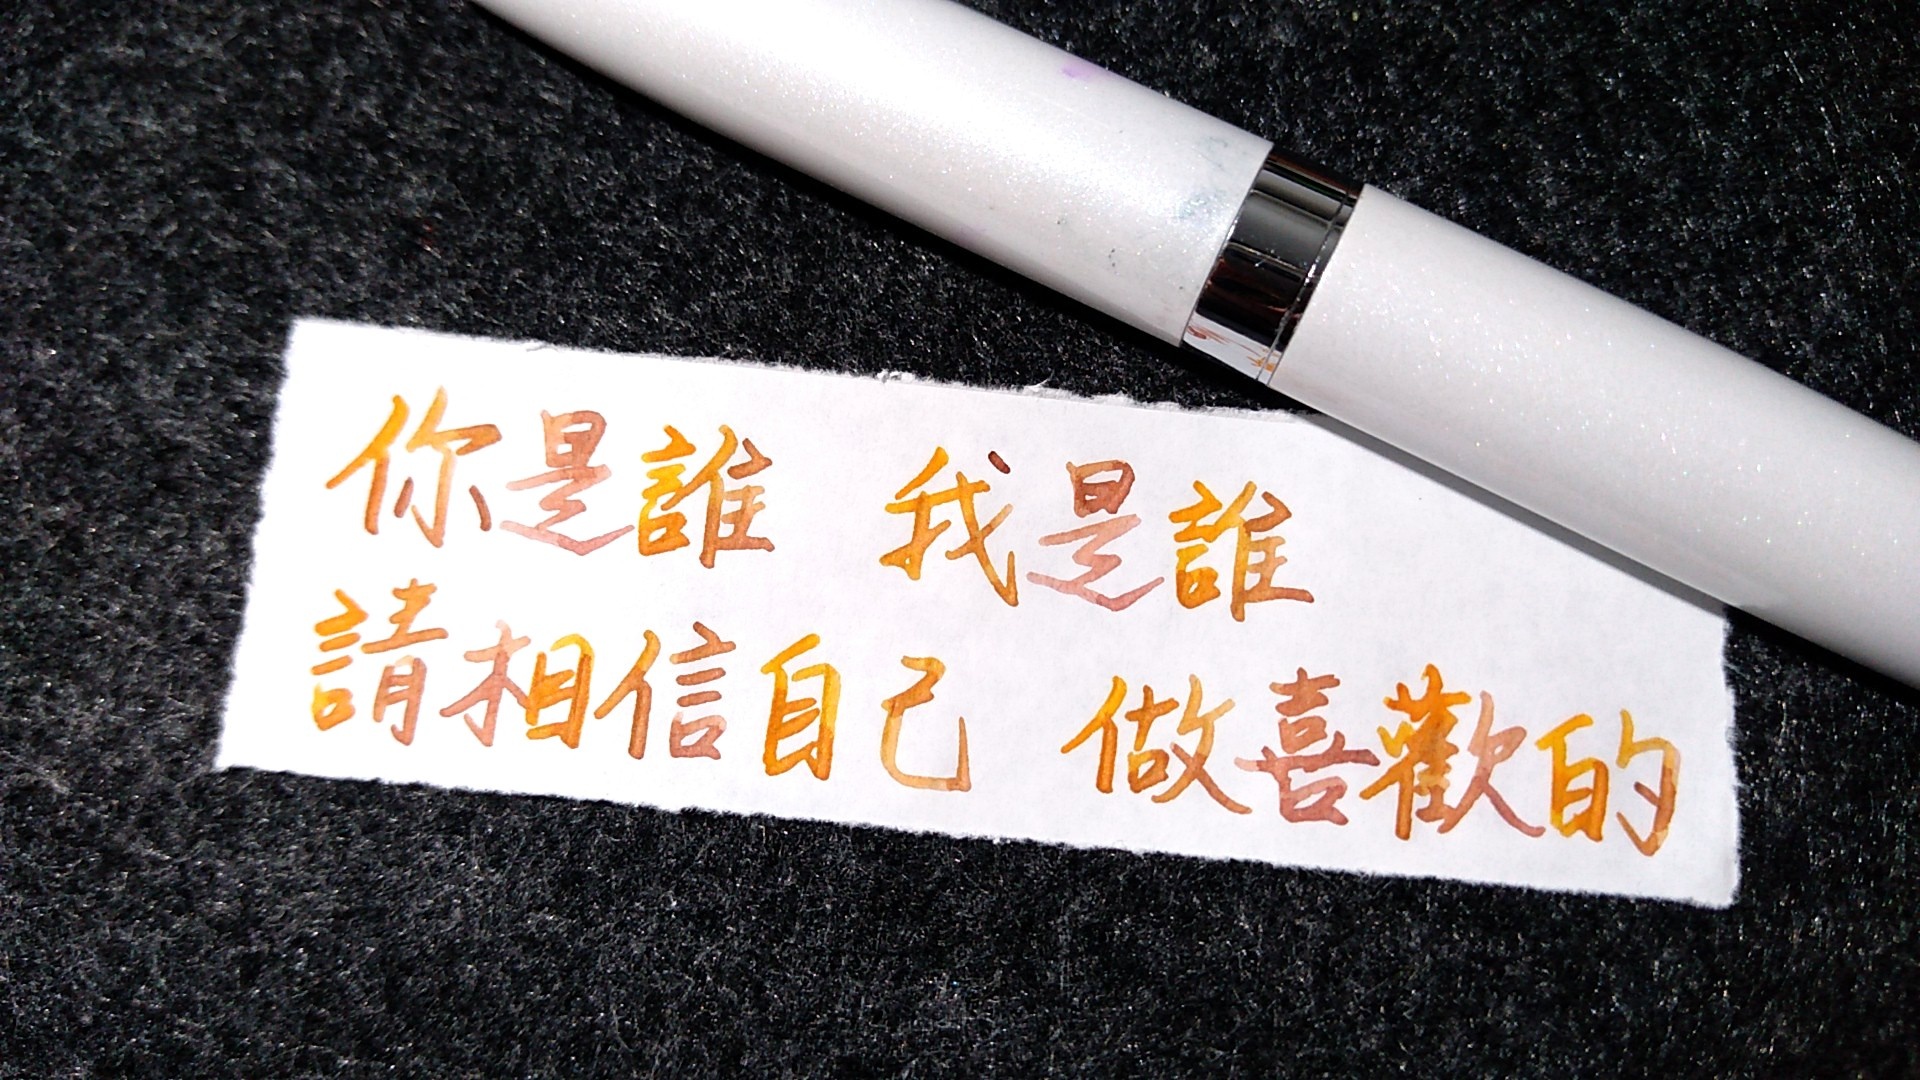 你是誰 我是誰
請相信自己 做喜歡的